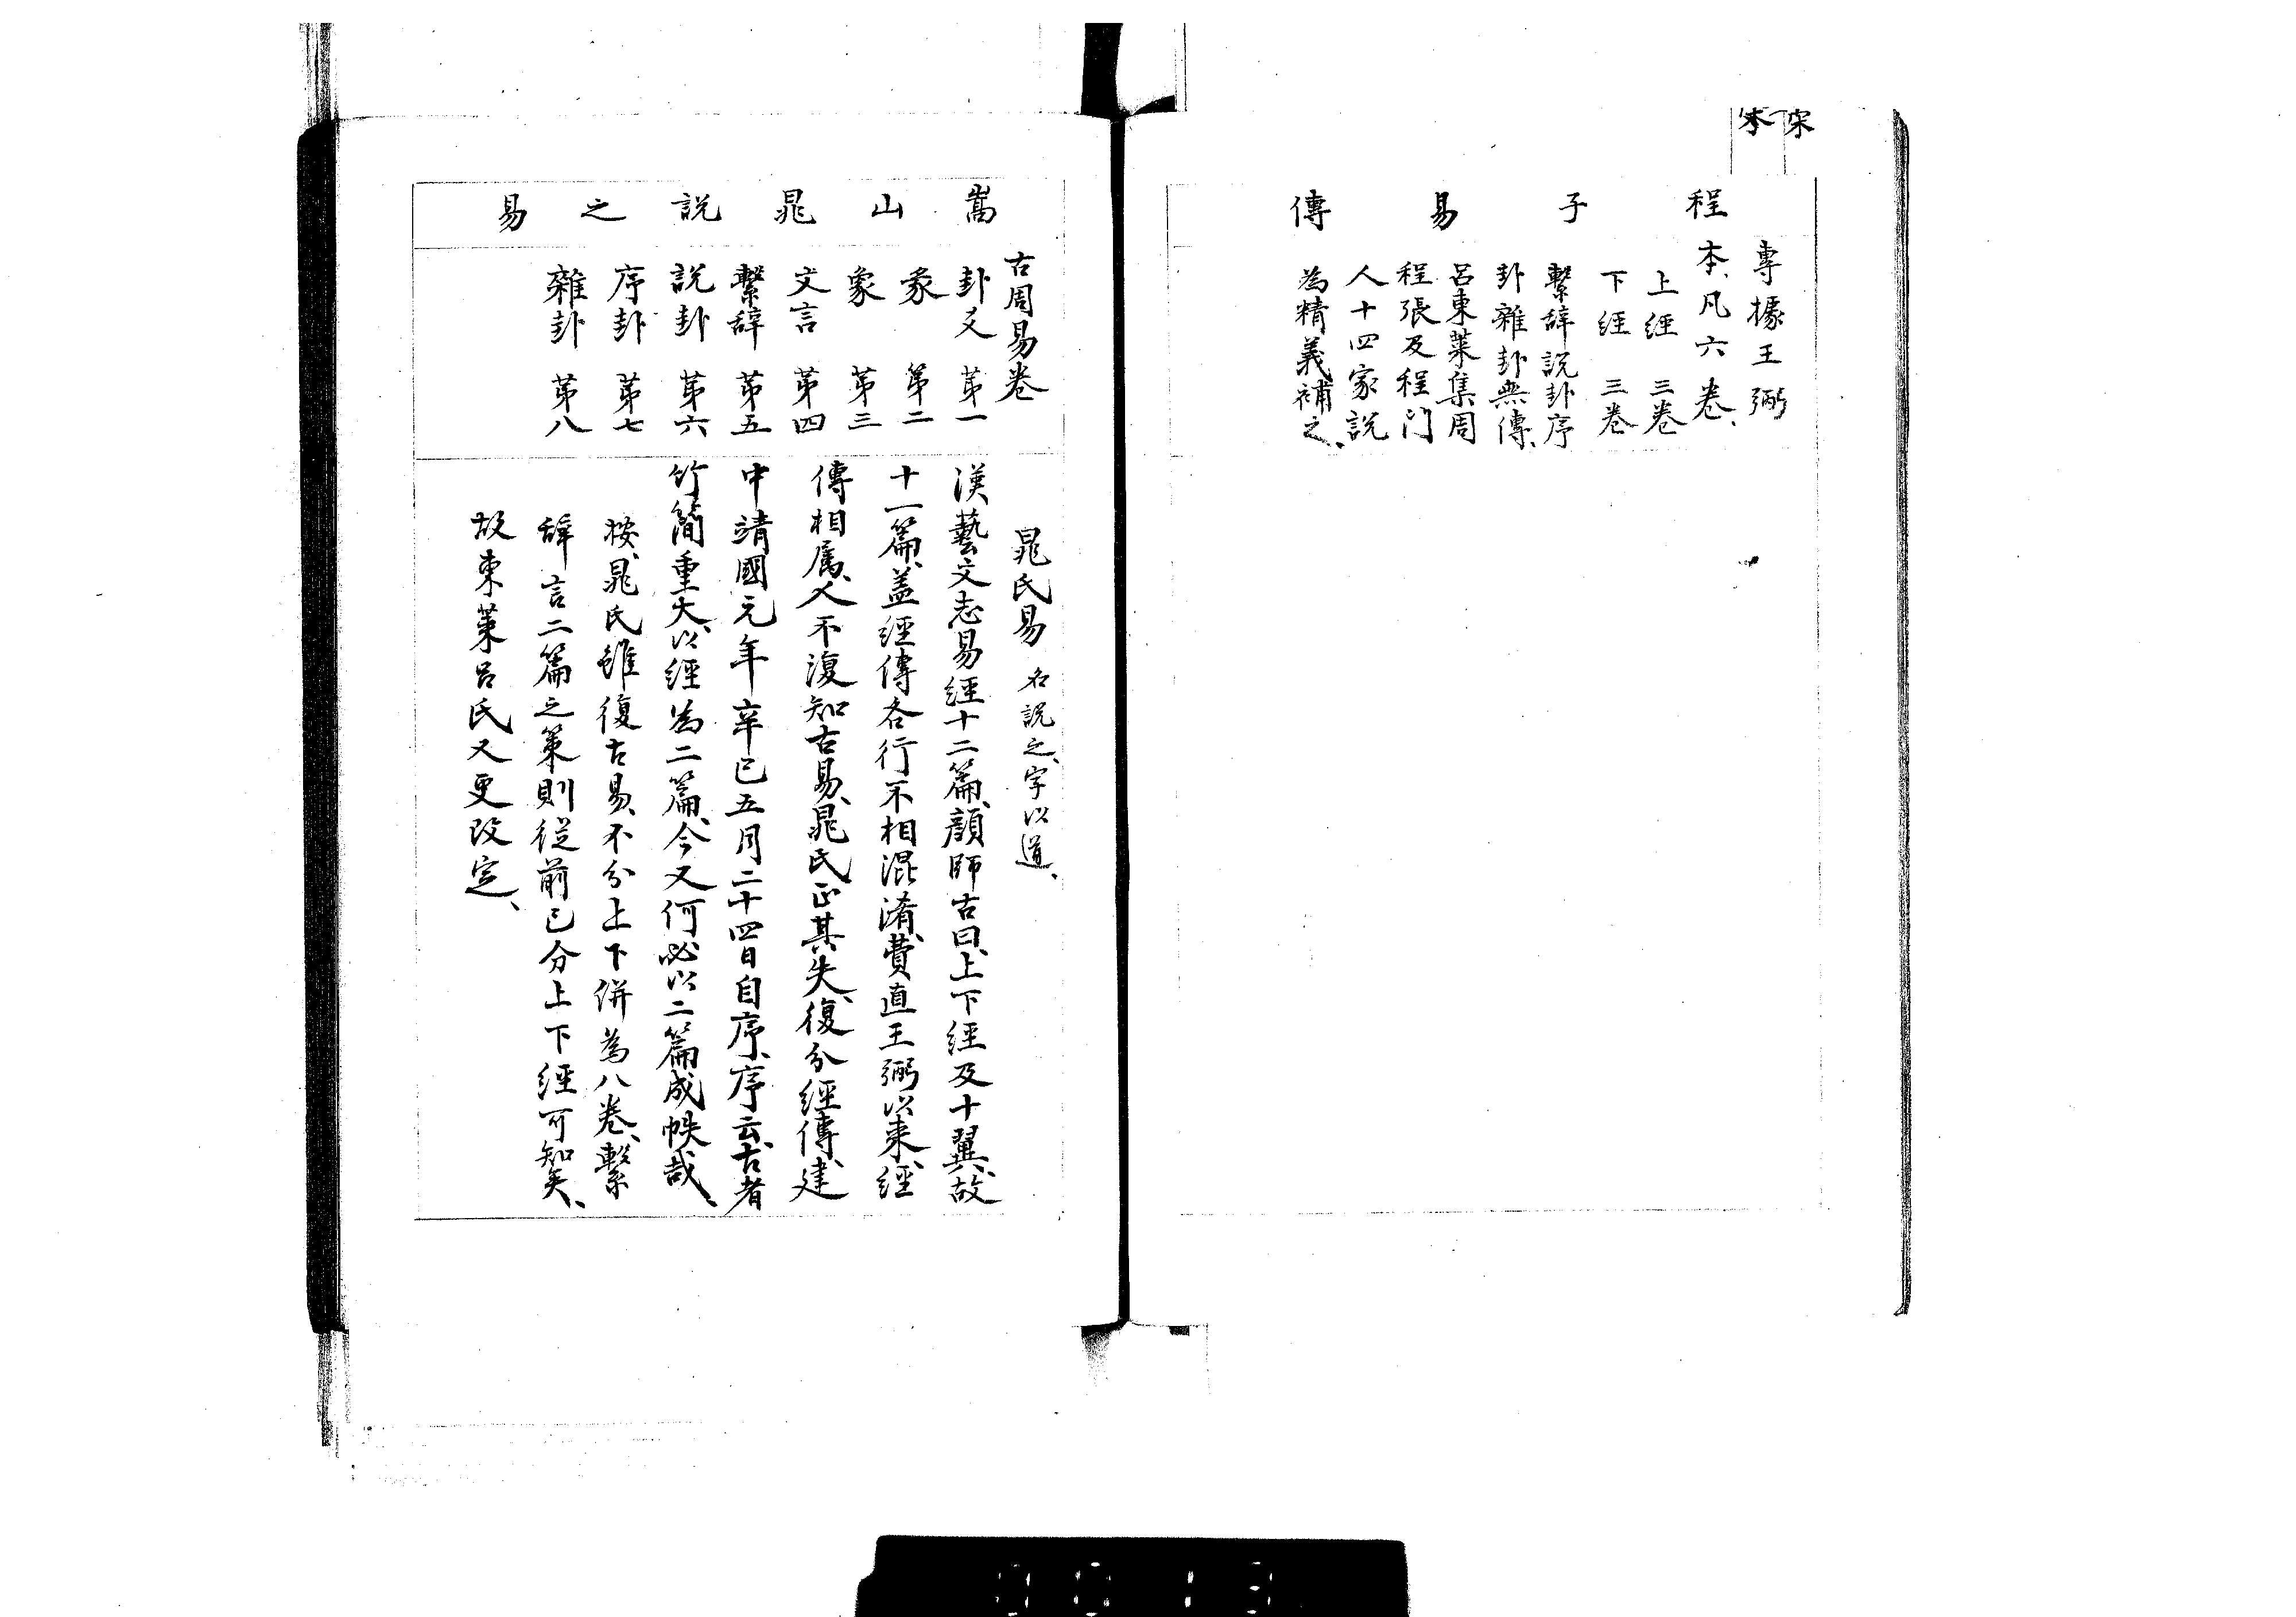 宋
本
程子易傳
專據王弼
本、凡六卷、
上經　三卷
下經　三卷
繫辞說卦序
卦雜卦無傳、
呂東萊集周
程張及程门
人十四家說
為精義補之、
嵩山晁說之易
古周易卷
卦爻　苐一
彖　苐二
象　苐三
文言　苐四
繫辞　苐五
說卦　苐六
序卦　苐七
雜卦　苐八
晁氏易　名說之、字以道、
漢藝文志易經十二篇、顔師古曰、上下經及十翼、故
十一篇、盖經傳各行不相混淆、費直王弼以来、經
傳相属、人不復知古易、晁氏正其失、復分經傳、建
中靖國元年辛巳五月二十四日自序、序云、古者
竹簡重大、以經為二篇、今又何必以二篇成帙哉、
按、晁氏雖復古易、不分上下併為八卷、繫
辞言二篇之策則従前已分上下經可知矣、
故東萊呂氏又更改定、